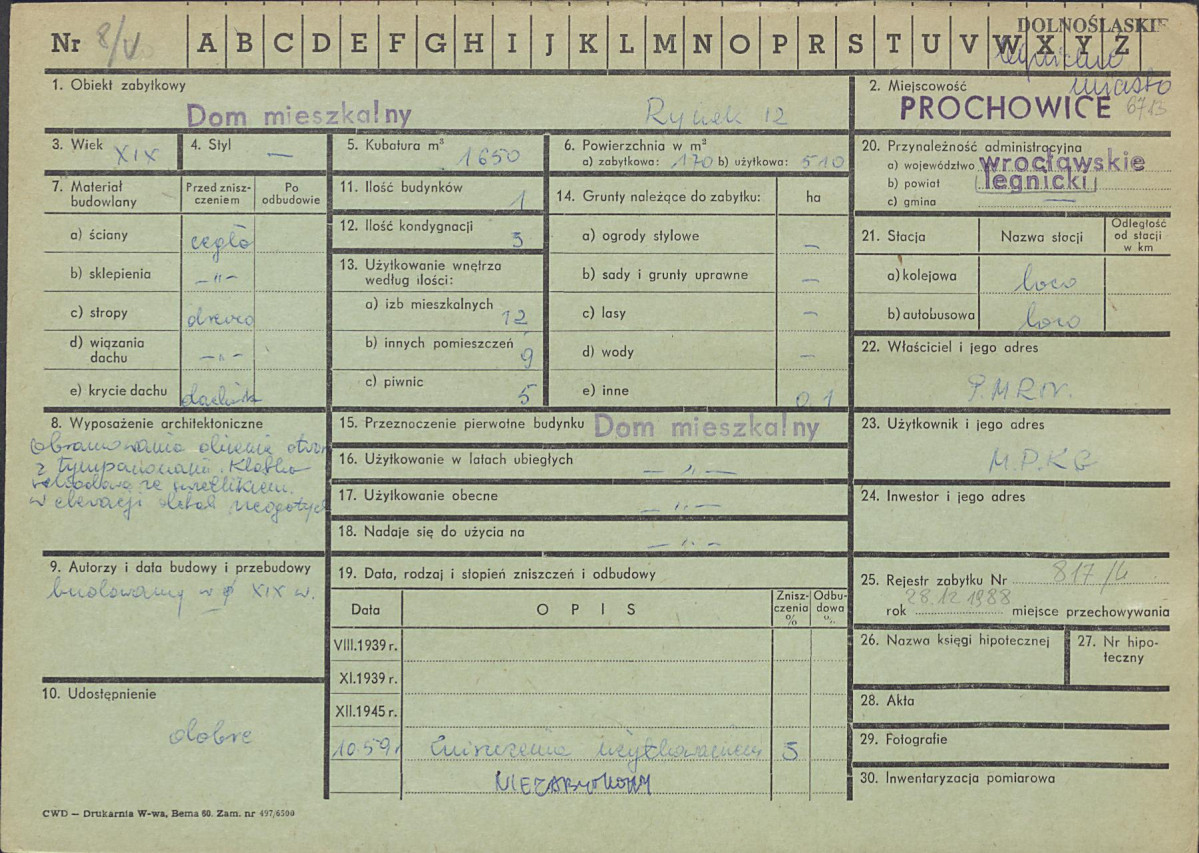 Nr 8/V A B C D E F G H I J K L M N O P R S T U V W X Y Z
DOLNOŚLĄSKIE
miasto
1. Obiekt zabytkowy
Dom mieszkalny Rynek 12
2. Miejscowość
PROCHOWICE 6713
3. Wiek XIX
4. Styl —
5. Kubatura m³ 1650
6. Powierzchnia w m²
a) zabytkowa: 170 b) użytkowa: 510
20. Przynależność administracyjna
a) województwo wrocławskie
b) powiat legnicki
c) gmina —
7. Materiał budowlany
Przed zniszczeniem
Po odbudowie
a) ściany cegła
b) sklepienia -"-
c) stropy drewno
d) wiązania dachu -"-
e) krycie dachu dachówk
11. Ilość budynków 1
12. Ilość kondygnacji 3
13. Użytkowanie wnętrza
według ilości:
a) izb mieszkalnych 12
b) innych pomieszczeń 9
c) piwnic 5
14. Grunty należące do zabytku: ha
a) ogrody stylowe —
b) sady i grunty uprawne —
c) lasy —
d) wody —
e) inne 0,1
21. Stacja Nazwa stacji Odległość od stacji w km
a) kolejowa loco
b) autobusowa loco
22. Właściciel i jego adres
P.M.R.N.
8. Wyposażenie architektoniczne
obramowania okienne otwor
z tympanonami. Klatka
schodowa ze świetlikiem.
w elewacji detal neogotyc
15. Przeznoczenie pierwotne budynku Dom mieszkalny
16. Użytkowanie w latach ubiegłych -"-
17. Użytkowanie obecne -"-
18. Nadaje się do użycia na -"-
23. Użytkownik i jego adres
M.P.K.G
24. Inwestor i jego adres
9. Autorzy i data budowy i przebudowy
budowany w XIX w.
10. Udostępnienie
dobre
19. Data, rodzaj i stopień zniszczeń i odbudowy
Data OPIS Zniszczenia % Odbudowa %
VIII.1939 r.
XI.1939 r.
XII.1945 r.
10.59 r zniszczenia użytkowaniem 5
NIEZABYTKOWY
25. Rejestr zabytku Nr 817/L
rok 28.12.1988 miejsce przechowywania
26. Nazwa księgi hipotecznej
27. Nr hipoteczny
28. Akta
29. Fotografie
30. Inwentaryzacja pomiarowa
CWD — Drukarnia W-wa, Bema 60. Zam. nr 497/6500